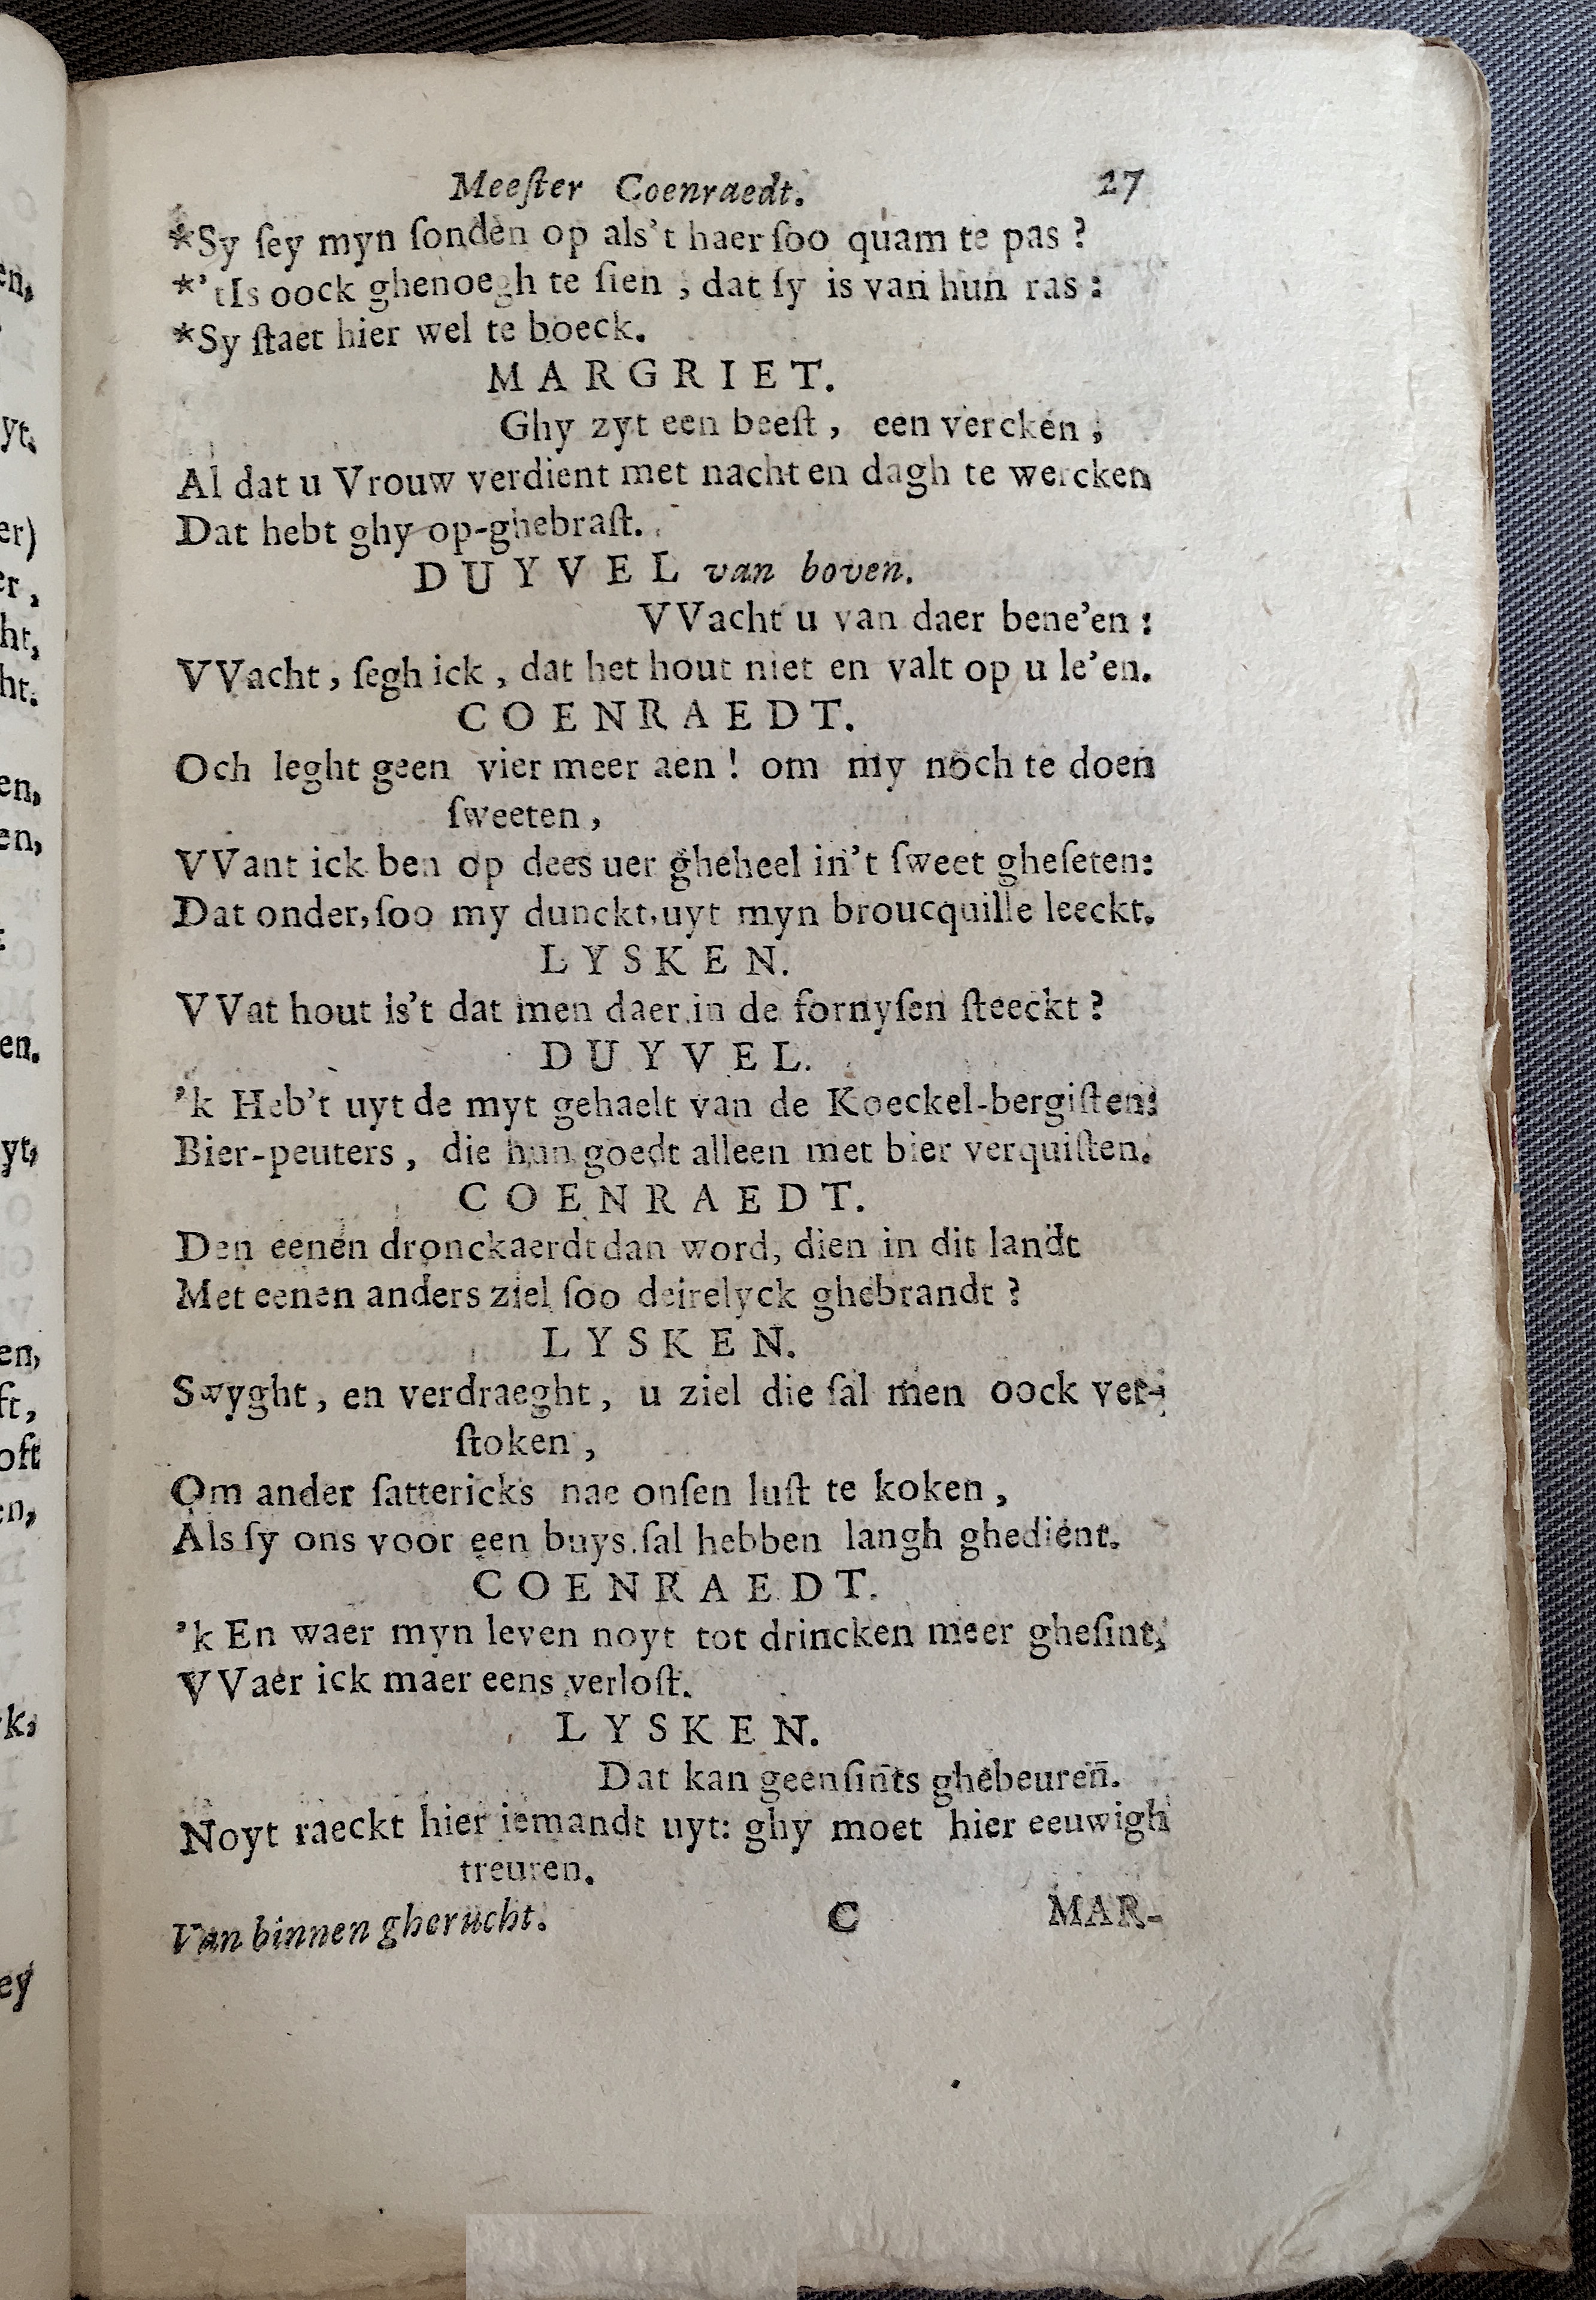 Meeſter Coenraedt. 27
*Sy ſey myn ſonden op als't haer ſoo quam te pas ?
*'tIs oock ghenoegh te ſien ; dat ſy is van hun ras :
*Sy ſtaet hier wel te boeck.
MARGRIET.
Ghy zyt een beeſt , een vercken ,
Al dat u Vrouw verdient met nacht en dagh te wercken
Dat hebt ghy op-ghebraſt.
DUYVEL van boven.
VVacht u van daer bene'en :
VVacht , ſegh ick , dat het hout niet en valt op u le'en.
COENRAEDT.
Och leght geen vier meer aen ! om my noch te doen
ſweeten ,
VVant ick ben op dees uer gheheel in't ſweet gheſeten:
Dat onder, ſoo my dunckt, uyt myn broucquille leeckt.
LYSKEN.
VVat hout is't dat men daer in de fornyſen ſteeckt ?
DUYVEL.
'k Heb't uyt de myt gehaelt van de Koeckel-bergiſten:
Bier-peuters , die hun goedt alleen met bier verquiſten.
COENRAEDT.
Den eenen dronckaerdt dan word, dien in dit landt
Met eenen anders ziel ſoo deirelyck ghebrandt ?
LYSKEN.
Swyght , en verdraeght , u ziel die ſal men oock ver-
ſtoken ,
Om ander ſattericks nae onſen luſt te koken ,
Als ſy ons voor een buys ſal hebben langh ghedient.
COENRAEDT.
'k En waer myn leven noyt tot drincken meer gheſint,
VVaer ick maer eens verloſt.
LYSKEN.
Dat kan geenſin̄ts ghebeuren̄.
Noyt raeckt hier iemandt uyt: ghy moet hier eeuwigh
treuren.
Van binnen gherucht. C MAR-
en,
yt.
er)
er ,
ht,
ht.
en,
en,
en.
yt,
en,
ft ,
oft
en,
k,
ey